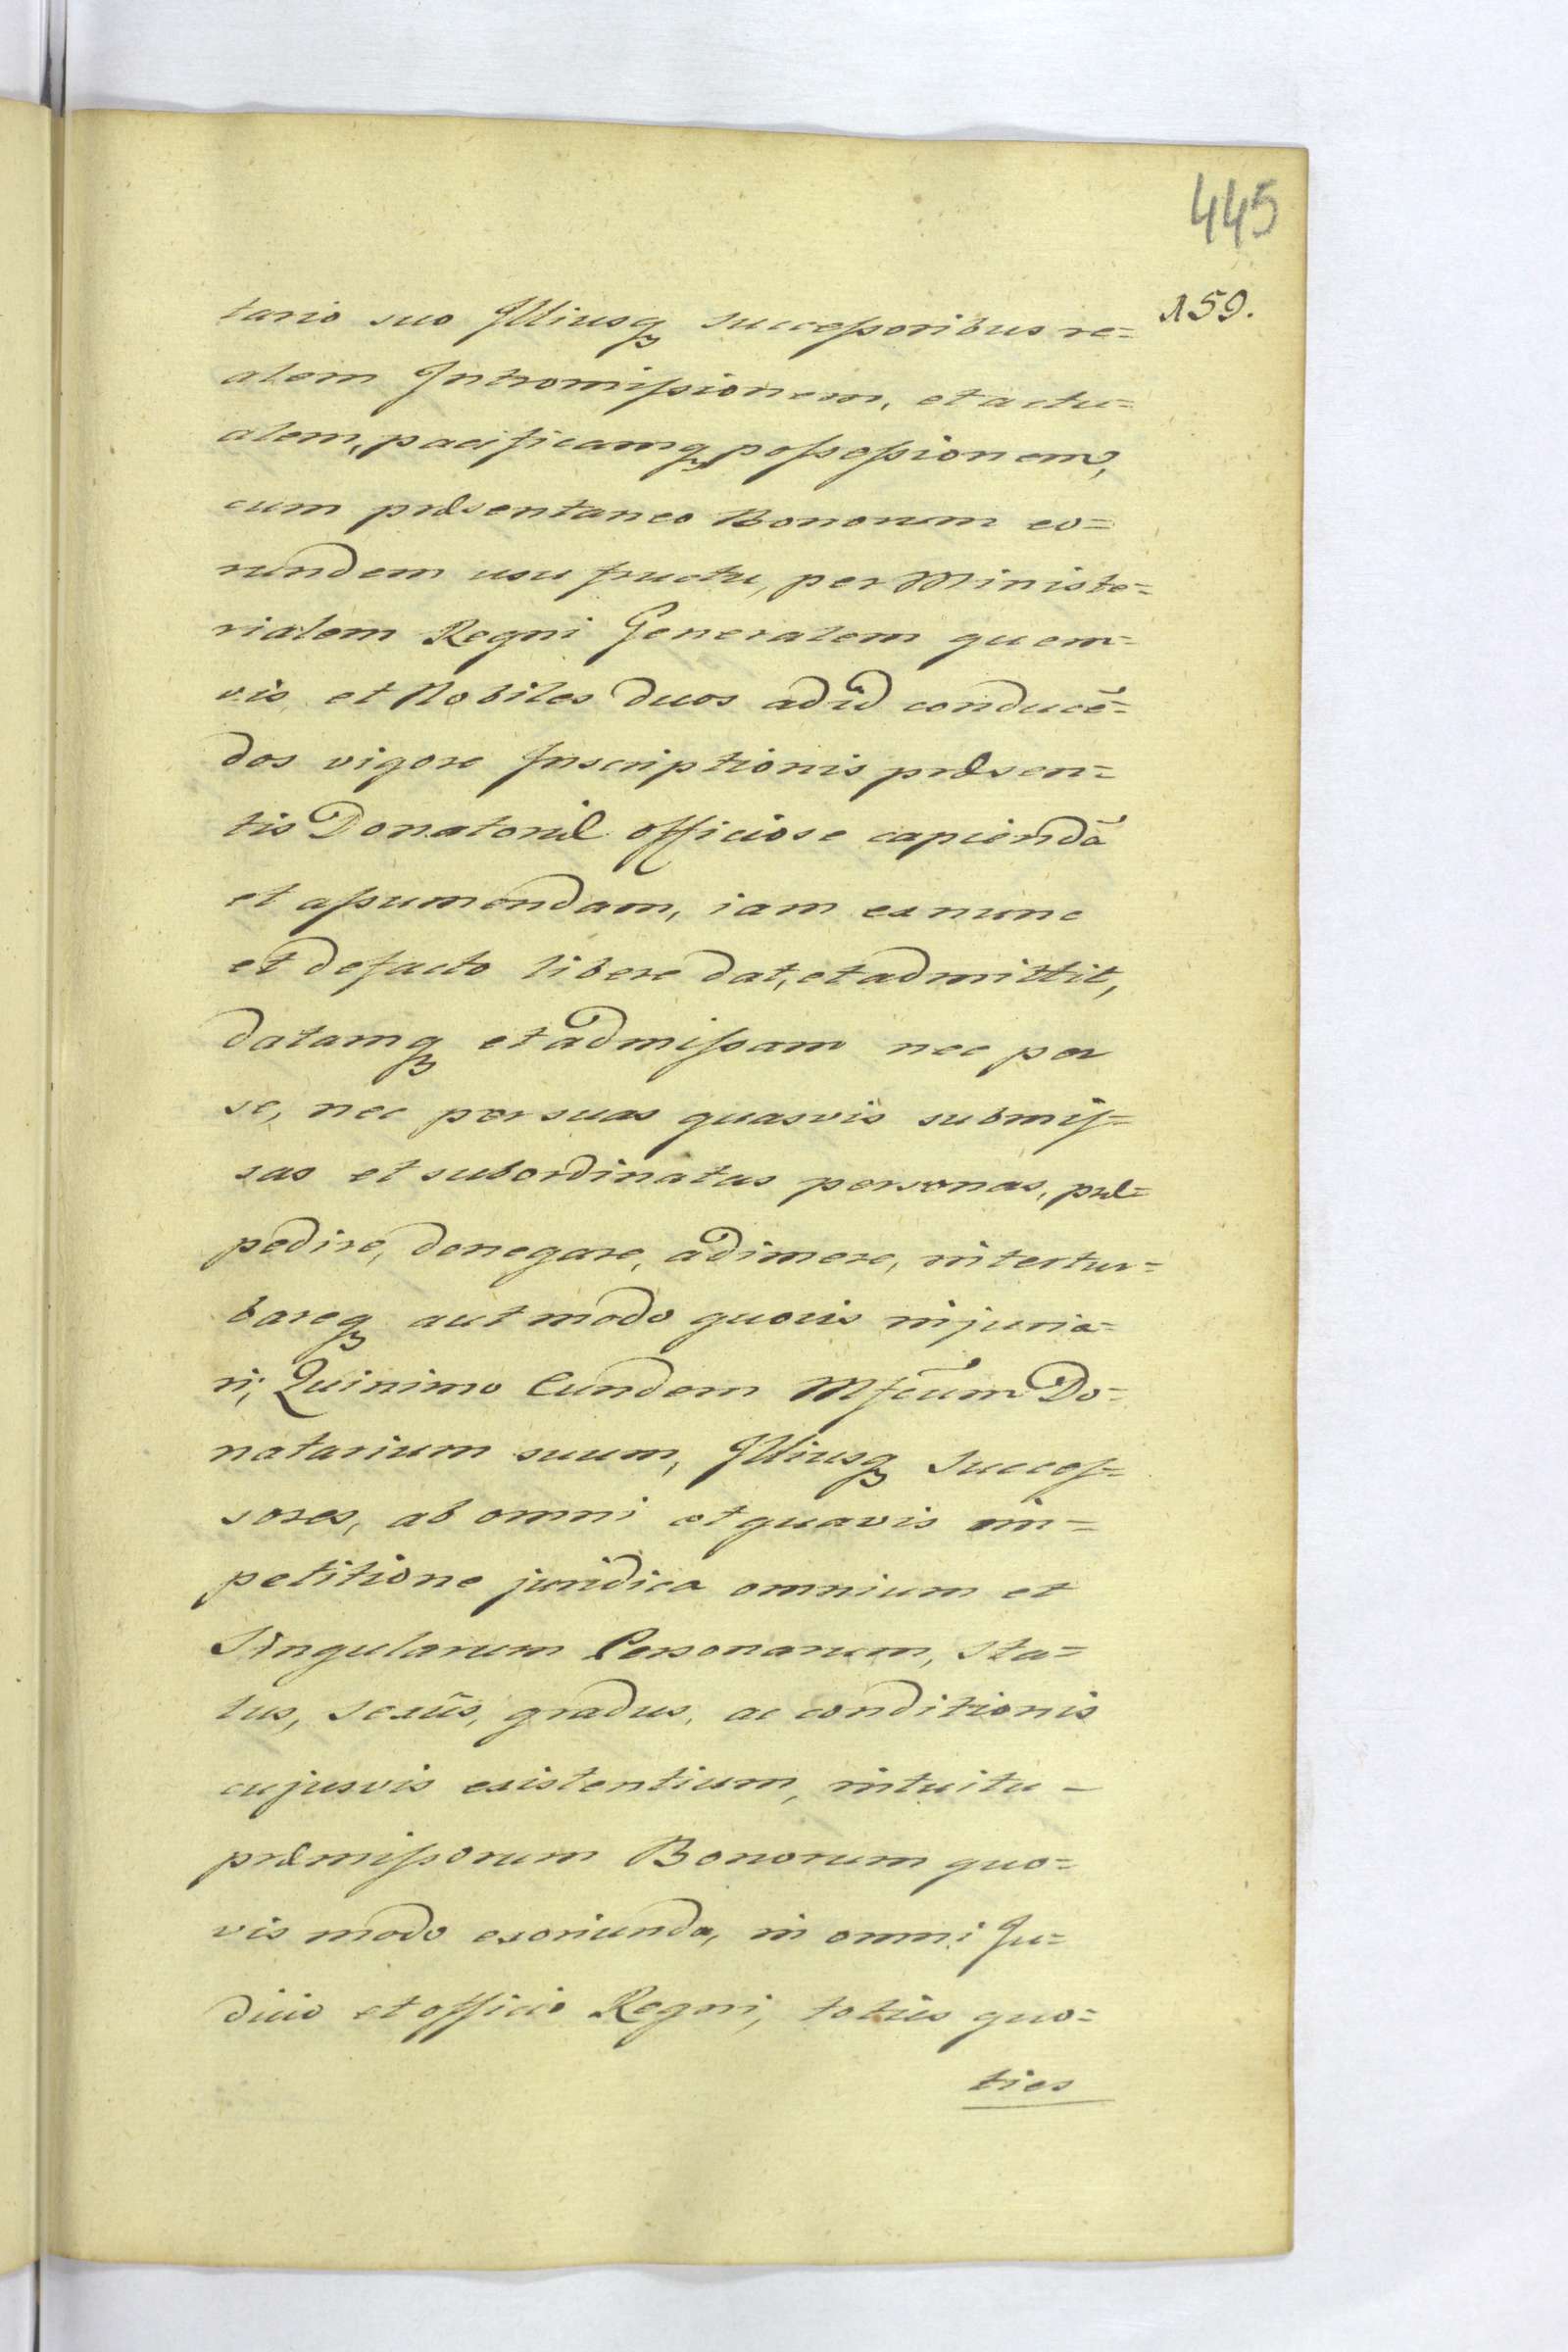 445
159.
tario suo Illiusq₃ Succeſsoribus re=
alem Intromiſsionem, et actu=
alem, pacificamq₃ poſseſsionem,
cum præsentaneo Bonorum eo=
rundem usu fructu, per Ministe=
rialem Regni Generalem quem=
vis et Nobiles duos ad id conducē=
dos vigore Inscriptionis præsen=
tis Donatoriæ officiose capiendā
et aſsumendam, iam ex nunc
et de facto libere dat, et admittit,
datamq₃ et admiſsam nec per
se, nec per suas quasvis submiſ=
sas et subordinatas personas, præ=
pedire, denegare, adimere, intertur=
bareq₃ aut modo quovis injuria=
ri; Quinimo Eundem Mfcūm Do=
natarium suum, Illiusq₃ Succeſ=
sores, ab omni et quavis im=
petitione juridica omnium et
Singularum Personarum, Sta=
tus, sexūs, gradus, ac conditionis
cujusvis existentium, intuitu -
præmiſsorum Bonorum quo=
vis modo exoriunda, in omni Ju=
dicio et officio Regni, toties quo=
ties